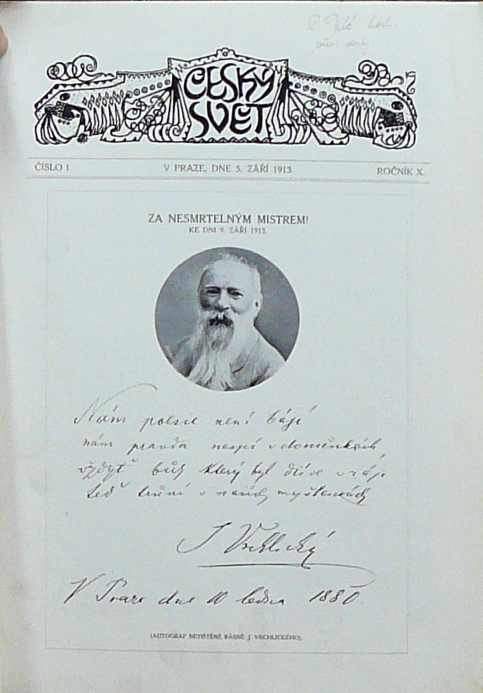 ČESKÝ
SVĚT
ČÍSLO 1.
V PRAZE, DNE 5. ZÁŘÍ 1913.
ROČNÍK X.
ZA NESMRTELNÝM MISTREM!
KE DNI 9. ZÁŘÍ 1912.
Nám poesie není bájí
nám pravda nespí v doměnkách
vždyť bůh který byl dříve v ráji
teď trůní v našich myšlenkách
J Vrchlický
V Praze dne 10 ledna 1880.
(AUTOGRAF NETIŠTĚNÉ BÁSNĚ J. VRCHLICKÉHO).